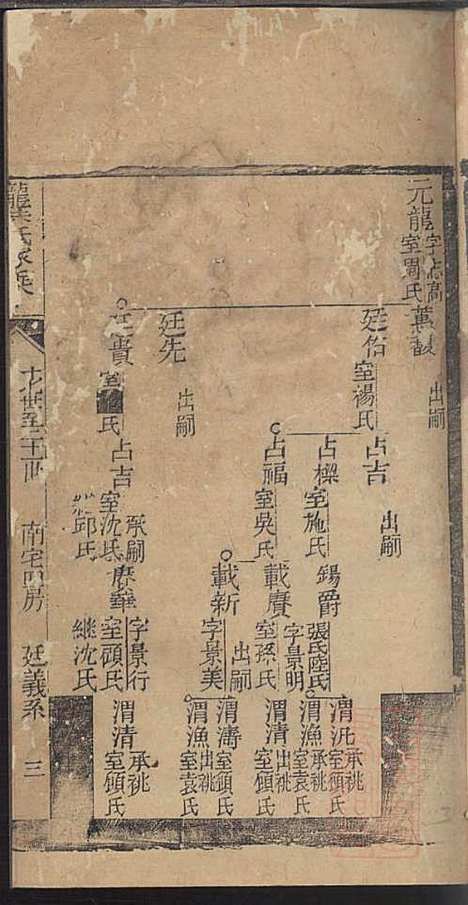 元龍 字占高
室周氏
出嗣
廷俗 室楊氏
占吉
出嗣
占樑 室施氏
錫爵
張氏陸氏
渭沇 承祧
室顧氏
渭漁 承祧
室袁氏
占福 室吳氏
載賡 字景明
室孫氏
渭清 出祧
室顧氏
載新 字景美
出嗣
渭濤 室顧氏
渭漁 出祧
室袁氏
廷先
出嗣
廷貴 室 氏
占吉 承嗣
室沈氏
邱氏
字景行
室顧氏
継沈氏
渭清 承祧
室顧氏
龔氏家乘
世至二十世 南宅四房 廷義系 三